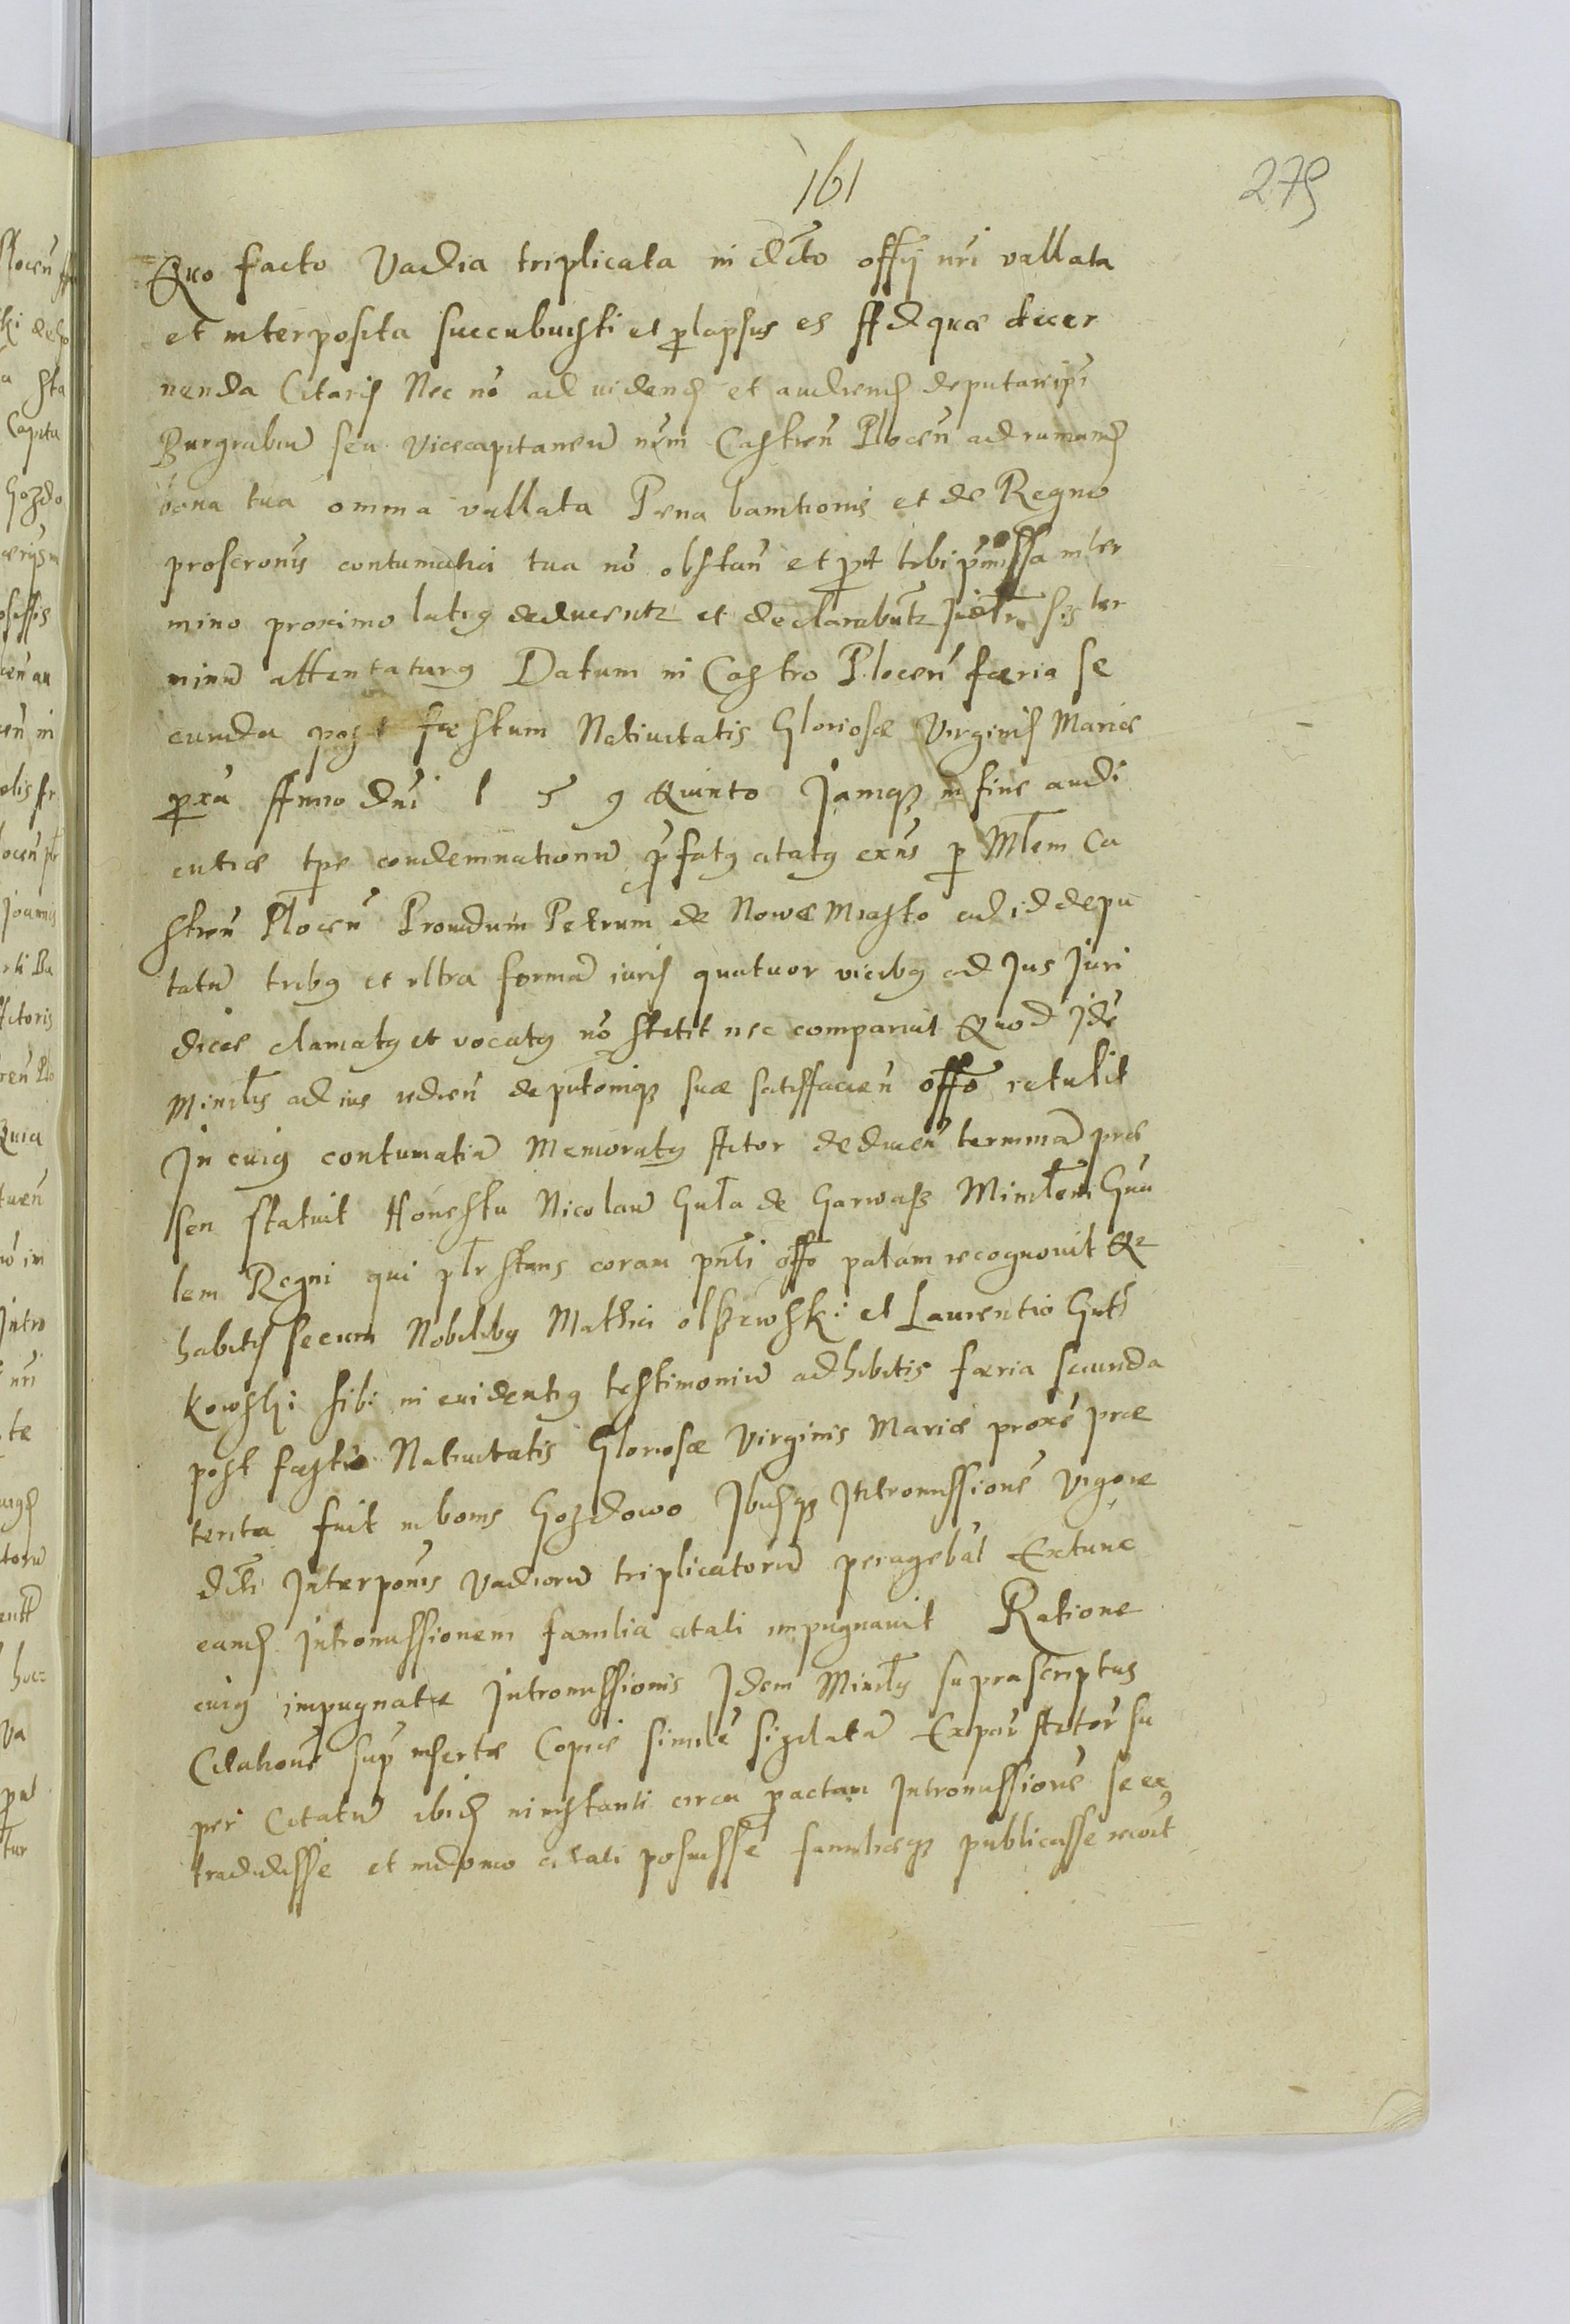 161
275
Quo facto Vadia triplicata in dicto offy nri vallata
et interposita succubuisti et plapsus es Ad quæ decer
nenda Citaris Nec nō ad videnđ et audienđ deputari pr
Burgrabiū seu Vicecapitaneū nrm Castren Plocen ad rumanđ
bona tua omnia vallata Pena bannitionis et de Regno
proscronis contumatia tua nō obstan et prt tibi pmissa in ter
mino proximo latiq deducentr et declarabuntr Juđlr sis ter
minū attentaturq Datum in Castro Plocen færia se
cunda post fæstum Natiuitatis Gloriosæ Virginis Mariæ
pxa Anno Dni 1 5 9 Quinto Jamqz in fine audi
entiæ tpe condemnationū prfatq citatq exns p Mlem Ca
stren Plocen Prouidum Petrum de Nowe Miasto ad id depu
tatū tribq et vltra formā iuris quatuor vicibq ad Jus Juri
dice clamatq et vocatq nō stetit nec comparuit Quod Idē
Minrlis ad ius reddien deputoniqz suæ satisfacien offo retulit
In cuiq contumatia Memoratq Actor deducen terminū præ
sen statuit Honestū Nicolaū Guła de Garwasz Minrlem Gna
lem Regni qui plr stans coram pnti offo palam recognouit Qz
habitis secum Nobilibq Mathia olszewski et Laurentio Gut
kowski sibi in euidentiq testimoniū adhibitis færia secunda
post fæstū Natiuitatis Gloriosæ Virginis Mariæ proxe præ
terita fuit in bonis Gozdowo Ibiqz Intromissione vigore
dicti Interponis Vadiorū triplicatorū peragebat Extunc
eanđ Intromissionem familia citati impugnauit Ratione
cuiq impugnatæ Intromissionis Idem Minrlq suprascriptus
Citatione sup insertæ Copiæ simile sigilatā Expar Actor su
per Citatū ibiđ in instanti circa pactam Intromissione se ex
tradidisse et in domo citati posuisse familiæqz publicasse recoit